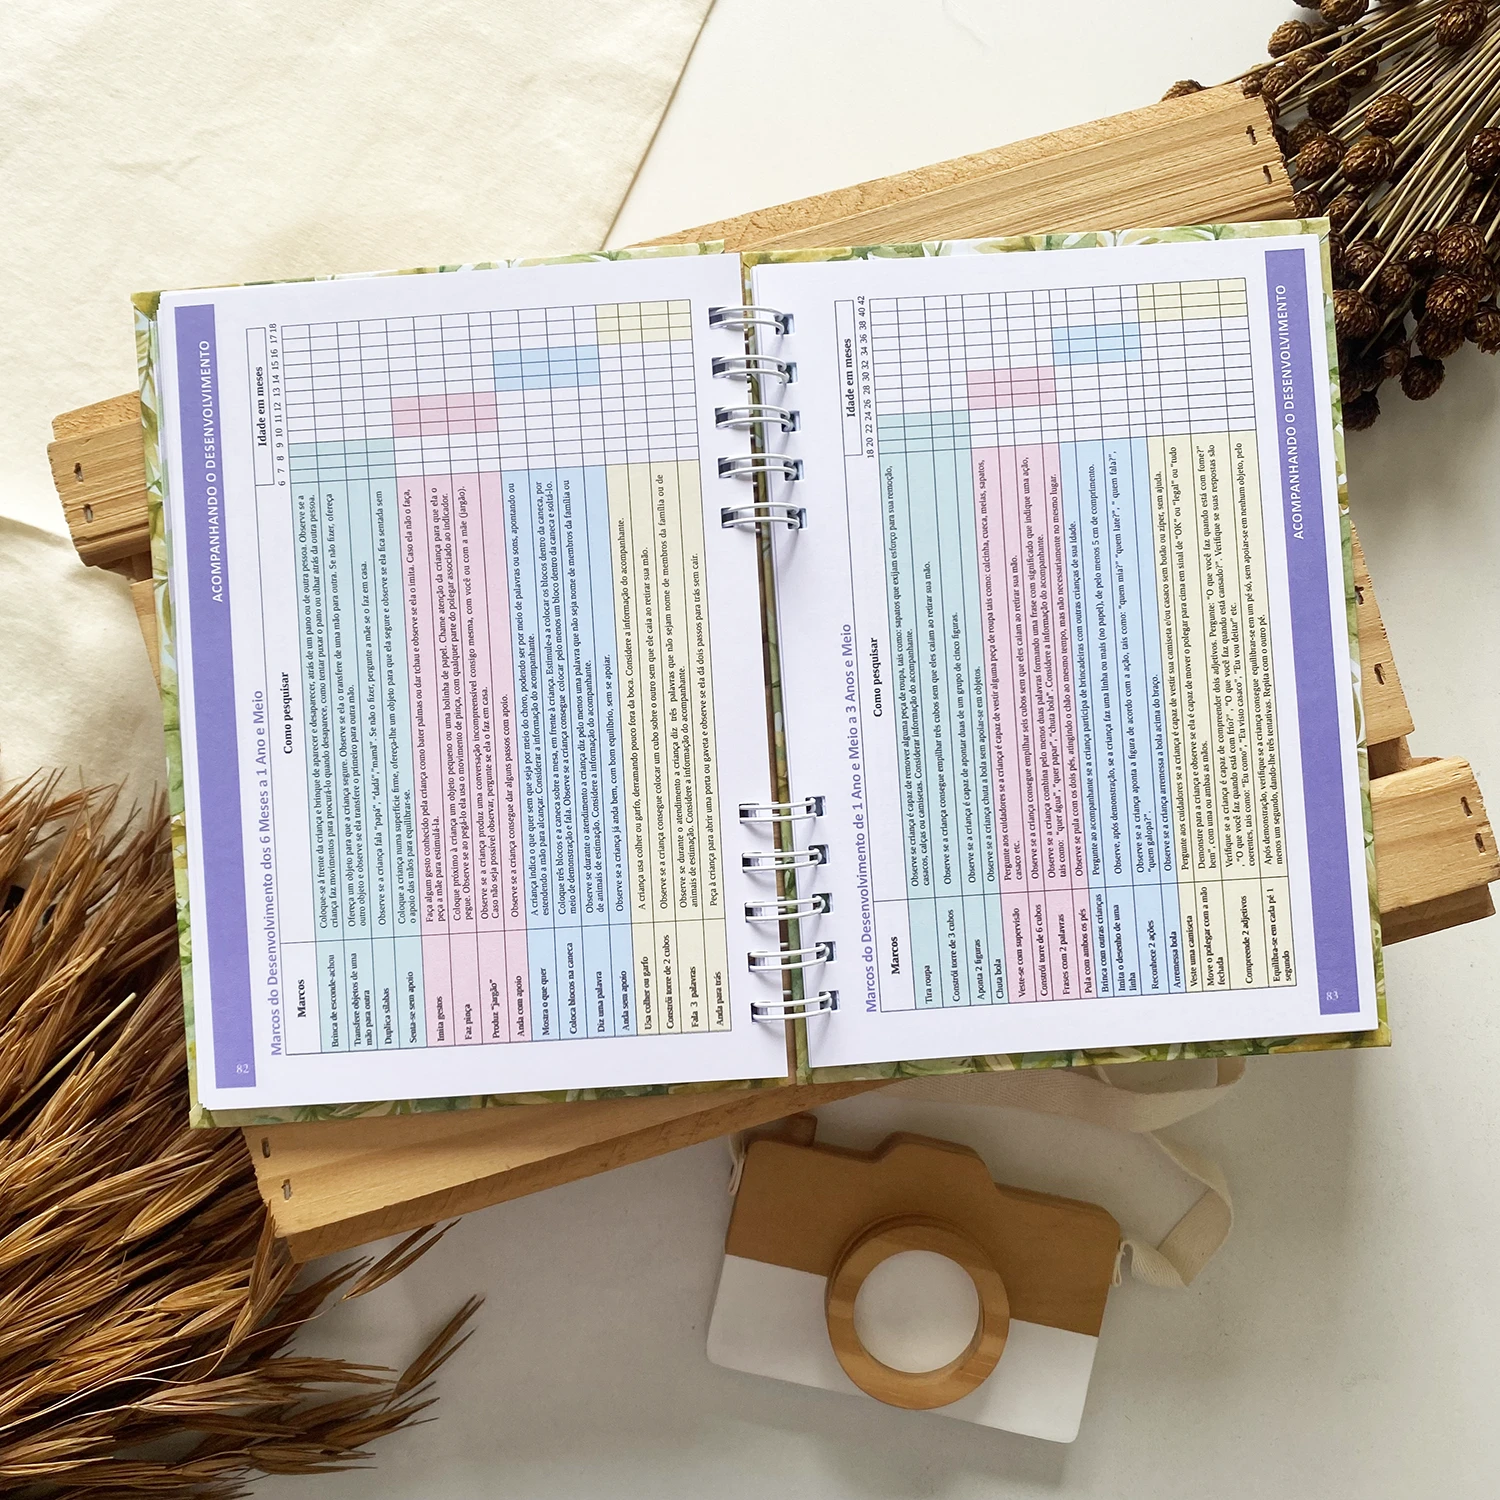 ACOMPANHANDO O DESENVOLVIMENTO
82
Marcos do Desenvolvimento dos 6 Meses a 1 Ano e Meio
Idade em meses
Marcos
Como pesquisar
6 7 8 9 10 11 12 13 14 15 16 17 18
Brinca de esconde-achou
Coloque-se à frente da criança e brinque de aparecer e desaparecer, atrás de um pano ou de outra pessoa. Observe se a
criança faz movimentos para procurá-lo quando desaparece, como tentar puxar o pano ou olhar atrás da outra pessoa.
Transfere objetos de uma
mão para outra
Ofereça um objeto para que a criança segure. Observe se ela o transfere de uma mão para outra. Se não fizer, ofereça
outro objeto e observe se ela transfere o primeiro para outra mão.
Duplica sílabas
Observe se a criança fala "papá", "dadá", "mamá". Se não o fizer, pergunte a mãe se o faz em casa.
Senta-se sem apoio
Coloque a criança numa superfície firme, ofereça-lhe um objeto para que ela segure e observe se ela fica sentada sem
o apoio das mãos para equilibrar-se.
Imita gestos
Faça algum gesto conhecido pela criança como bater palmas ou dar tchau e observe se ela o imita. Caso ela não o faça,
peça a mãe para estimulá-la.
Faz pinça
Coloque próximo à criança um objeto pequeno ou uma bolinha de papel. Chame atenção da criança para que ela o
pegue. Observe se ao pegá-lo ela usa o movimento de pinça, com qualquer parte do polegar associado ao indicador.
Produz "jargão"
Observe se a criança produz uma conversação incompreensível consigo mesma, com você ou com a mãe (jargão).
Caso não seja possível observar, pergunte se ela o faz em casa.
Anda com apoio
Observe se a criança consegue dar alguns passos com apoio.
Mostra o que quer
A criança indica o que quer sem que seja por meio do choro, podendo ser por meio de palavras ou sons, apontando ou
estendendo a mão para alcançar. Considerar a informação do acompanhante.
Coloca blocos na caneca
Coloque três blocos e a caneca sobre a mesa, em frente à criança. Estimule-a a colocar os blocos dentro da caneca, por
meio de demonstração e fala. Observe se a criança consegue colocar pelo menos um bloco dentro da caneca e soltá-lo.
Diz uma palavra
Observe se durante o atendimento a criança diz pelo menos uma palavra que não seja nome de membros da família ou
de animais de estimação. Considere a informação do acompanhante.
Anda sem apoio
Observe se a criança já anda bem, com bom equilíbrio, sem se apoiar.
Usa colher ou garfo
A criança usa colher ou garfo, derramando pouco fora da boca. Considere a informação do acompanhante.
Constrói torre de 2 cubos
Observe se a criança consegue colocar um cubo sobre o outro sem que ele caia ao retirar sua mão.
Fala 3 palavras
Observe se durante o atendimento a criança diz três palavras que não sejam nome de membros da família ou de
animais de estimação. Considere a informação do acompanhante.
Anda para trás
Peça à criança para abrir uma porta ou gaveta e observe se ela dá dois passos para trás sem cair.
Marcos do Desenvolvimento de 1 Ano e Meio a 3 Anos e Meio
Idade em meses
Marcos
Como pesquisar
18 20 22 24 26 28 30 32 34 36 38 40 42
Tira roupa
Observe se criança é capaz de remover alguma peça de roupa, tais como: sapatos que exijam esforço para sua remoção,
casacos, calças ou camisetas. Considerar informação do acompanhante.
Constrói torre de 3 cubos
Observe se a criança consegue empilhar três cubos sem que eles caiam ao retirar sua mão.
Aponta 2 figuras
Observe se a criança é capaz de apontar duas de um grupo de cinco figuras.
Chuta bola
Observe se a criança chuta a bola sem apoiar-se em objetos.
Veste-se com supervisão
Pergunte aos cuidadores se a criança é capaz de vestir alguma peça de roupa tais como: calcinha, cueca, meias, sapatos,
casaco etc.
Constrói torre de 6 cubos
Observe se a criança consegue empilhar seis cubos sem que eles caiam ao retirar sua mão.
Frases com 2 palavras
Observe se a criança combina pelo menos duas palavras formando uma frase com significado que indique uma ação,
tais como: "quer água", "quer papar", "chuta bola". Considere a informação do acompanhante.
Pula com ambos os pés
Observe se pula com os dois pés, atingindo o chão ao mesmo tempo, mas não necessariamente no mesmo lugar.
Brinca com outras crianças
Pergunte ao acompanhante se a criança participa de brincadeiras com outras crianças de sua idade.
Imita o desenho de uma
linha
Observe, após demonstração, se a criança faz uma linha ou mais (no papel), de pelo menos 5 cm de comprimento.
Reconhece 2 ações
Observe se a criança aponta a figura de acordo com a ação, tais como: "quem mia?" "quem late?", " quem fala?",
"quem galopa?".
Arremessa bola
Observe se a criança arremessa a bola acima do braço.
Veste uma camiseta
Pergunte aos cuidadores se a criança é capaz de vestir sua camiseta e/ou casaco sem botão ou zíper, sem ajuda.
Move o polegar com a mão
fechada
Demonstre para a criança e observe se ela é capaz de mover o polegar para cima em sinal de "OK" ou "legal" ou "tudo
bem", com uma ou ambas as mãos.
Compreende 2 adjetivos
Verifique se a criança é capaz de compreender dois adjetivos. Pergunte: "O que você faz quando está com fome?"
, "O que você faz quando está com frio?", "O que você faz quando está cansado?". Verifique se suas respostas são
coerentes, tais como: "Eu como", "Eu visto casaco", "Eu vou deitar" etc.
Equilibra-se em cada pé 1
segundo
Após demonstração, verifique se a criança consegue equilibrar-se em um pé só, sem apoiar-se em nenhum objeto, pelo
menos um segundo, dando-lhe três tentativas. Repita com o outro pé.
83
ACOMPANHANDO O DESENVOLVIMENTO